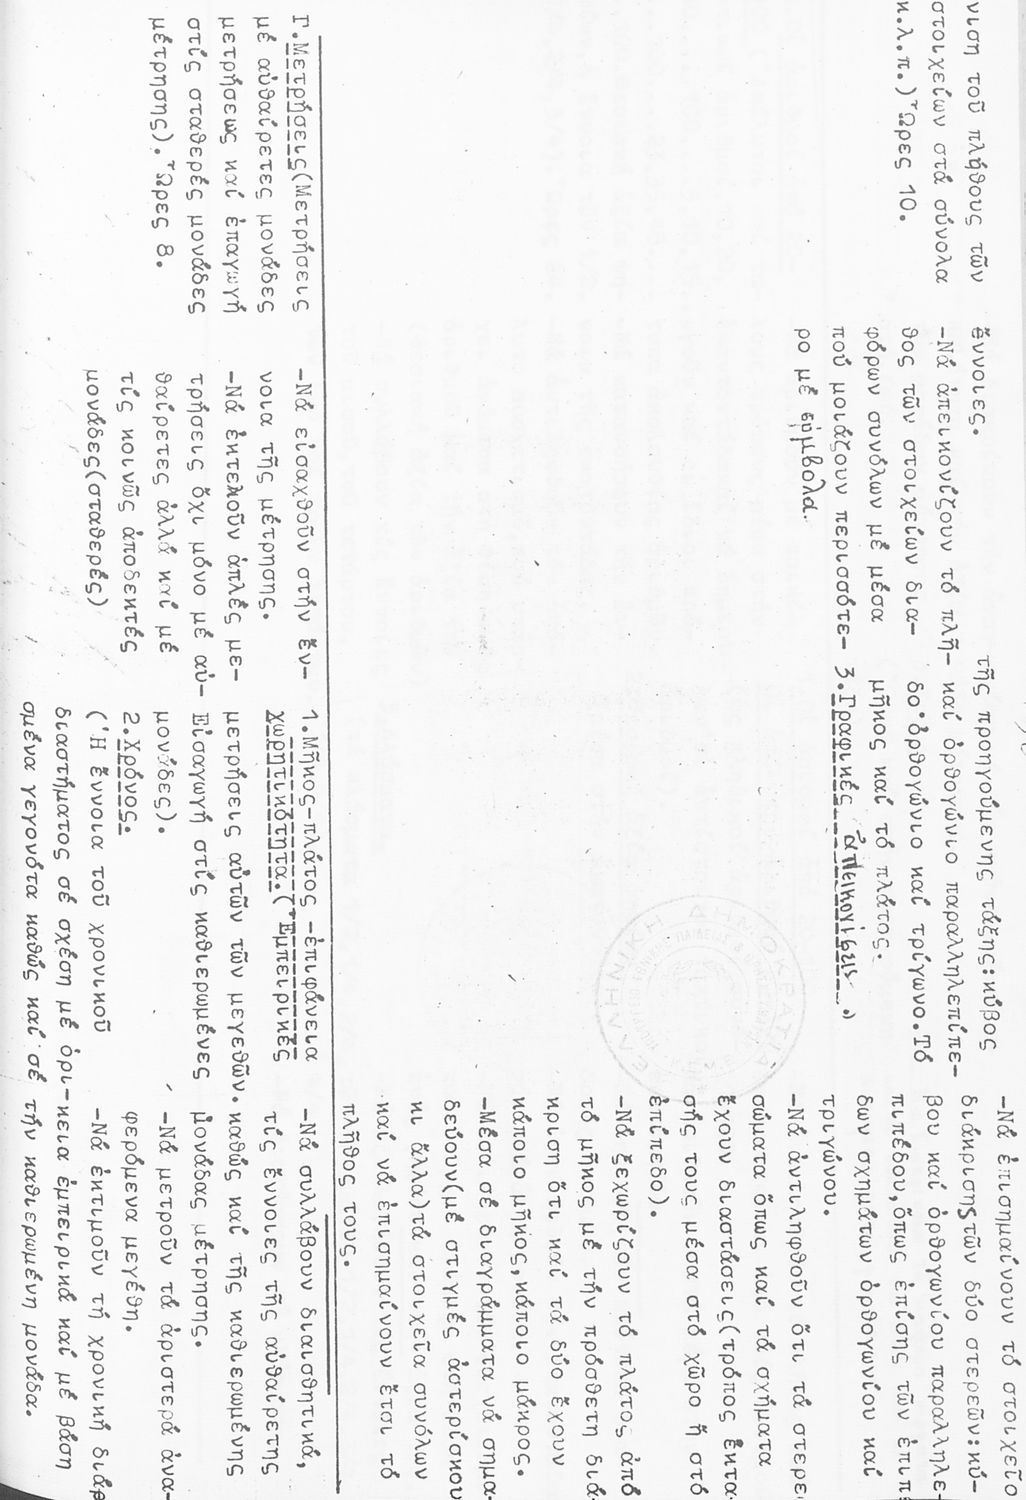 νιση τοῦ πλήθους τῶν
στοιχείων στά σύνολα
κ.λ.π.) Ὧρες 10.
ἔννοιες.
-Νά ἀπεικονίζουν τό πλῆ-
θος τῶν στοιχείων δια-
φόρων συνόλων μέ μέσα
πού μοιάζουν περισσότε-
ρο μέ σύμβολα.
τῆς προηγούμενης τάξης:κύβος
καί ὀρθογώνιο παραλληλεπίπε-
δο·ὀρθογώνιο καί τρίγωνο.Τό
μῆκος καί τό πλάτος.
3.Γραφικές ἀπεικονίσεις
-Νά ἐπισημαίνουν τό στοιχεῖο
διάκρισης τῶν δύο στερεῶν:κύ-
βου καί ὀρθογωνίου παραλληλε-
πιπέδου,ὅπως ἐπίσης τῶν ἐπιπέ
δων σχημάτων ὀρθογωνίου καί
τριγώνου.
-Νά ἀντιληφθοῦν ὅτι τά στερεά
σώματα ὅπως καί τά σχήματα
ἔχουν διαστάσεις(τρόπος ἔκτα-
σής τους μέσα στό χῶρο ἤ στό
ἐπίπεδο).
-Νά ξεχωρίζουν τό πλάτος ἀπό
τό μῆκος μέ τήν πρόσθετη διά-
κριση ὅτι καί τά δύο ἔχουν
κάποιο μῆκος,κάποιο μάκρος.
-Μέσα σέ διαγράμματα νά σημα-
δεύουν(μέ στιγμές ἀστερίσκου
κι ἄλλα)τά στοιχεῖα συνόλων
καί νά ἐπισημαίνουν ἔτσι τό
πλῆθος τους.
Γ.Μετρήσεις(Μετρήσεις
μέ αὐθαίρετες μονάδες
μετρήσεως καί ἐπαγωγή
στίς σταθερές μονάδες
μέτρησης). Ὧρες 8.
-Νά εἰσαχθοῦν στήν ἔν-
νοια τῆς μέτρησης.
-Νά ἐκτελοῦν ἁπλές με-
τρήσεις ὄχι μόνο μέ αὐ-
θαίρετες ἀλλά καί μέ
τίς κοινῶς ἀποδεκτές
μονάδες(σταθερές)
1.Μῆκος-πλάτος -ἐπιφάνεια
χωρητικότητα.(Ἐμπειρικές
μετρήσεις αὐτῶν τῶν μεγεθῶν.
Εἰσαγωγή στίς καθιερωμένες
μονάδες).
2.Χρόνος.
(Ἡ ἔννοια τοῦ χρονικοῦ
διαστήματος σέ σχέση μέ ὁρι-
σμένα γεγονότα καθώς καί σέ
-Νά συλλάβουν διαισθητικά,
τίς ἔννοιες τῆς αὐθαίρετης
καθώς καί τῆς καθιερωμένης
μονάδας μέτρησης.
-Νά μετροῦν τά ἀριστερά ἀνα-
φερόμενα μεγέθη.
-Νά ἐκτιμοῦν τή χρονική διάρ
κεια ἐμπειρικά καί μέ βάση
τήν καθιερωμένη μονάδα.
ΕΛΛΗΝΙΚΗ ΔΗΜΟΚΡΑΤΙΑ